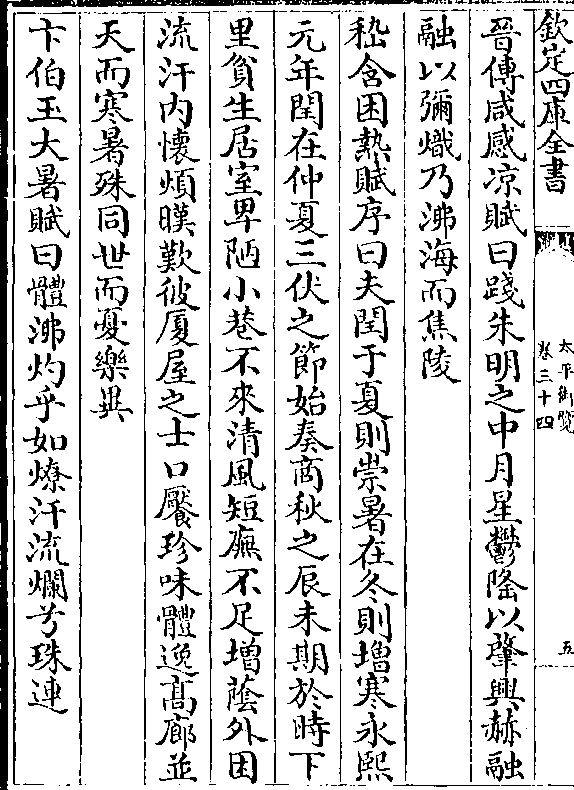 欽定四庫全書
太平御覽
卷三十四
五
晉傅咸感凉賦曰踐朱明之中月星鬱隆以肇興赫融
融以彌熾乃沸海而焦陵
嵇含困熱賦序曰夫閏于夏則崇暑在冬則增寒永熙
元年閏在仲夏三伏之節始奏商秋之辰未期於時下
里貧生居室卑陋小巷不來清風短廡不足增蔭外困
流汗内懷煩暵歎彼厦屋之士口饜珍味體逸髙廊並
天而寒暑殊同世而憂樂異
卞伯玉大暑賦曰體沸灼乎如燎汗流爛兮珠連